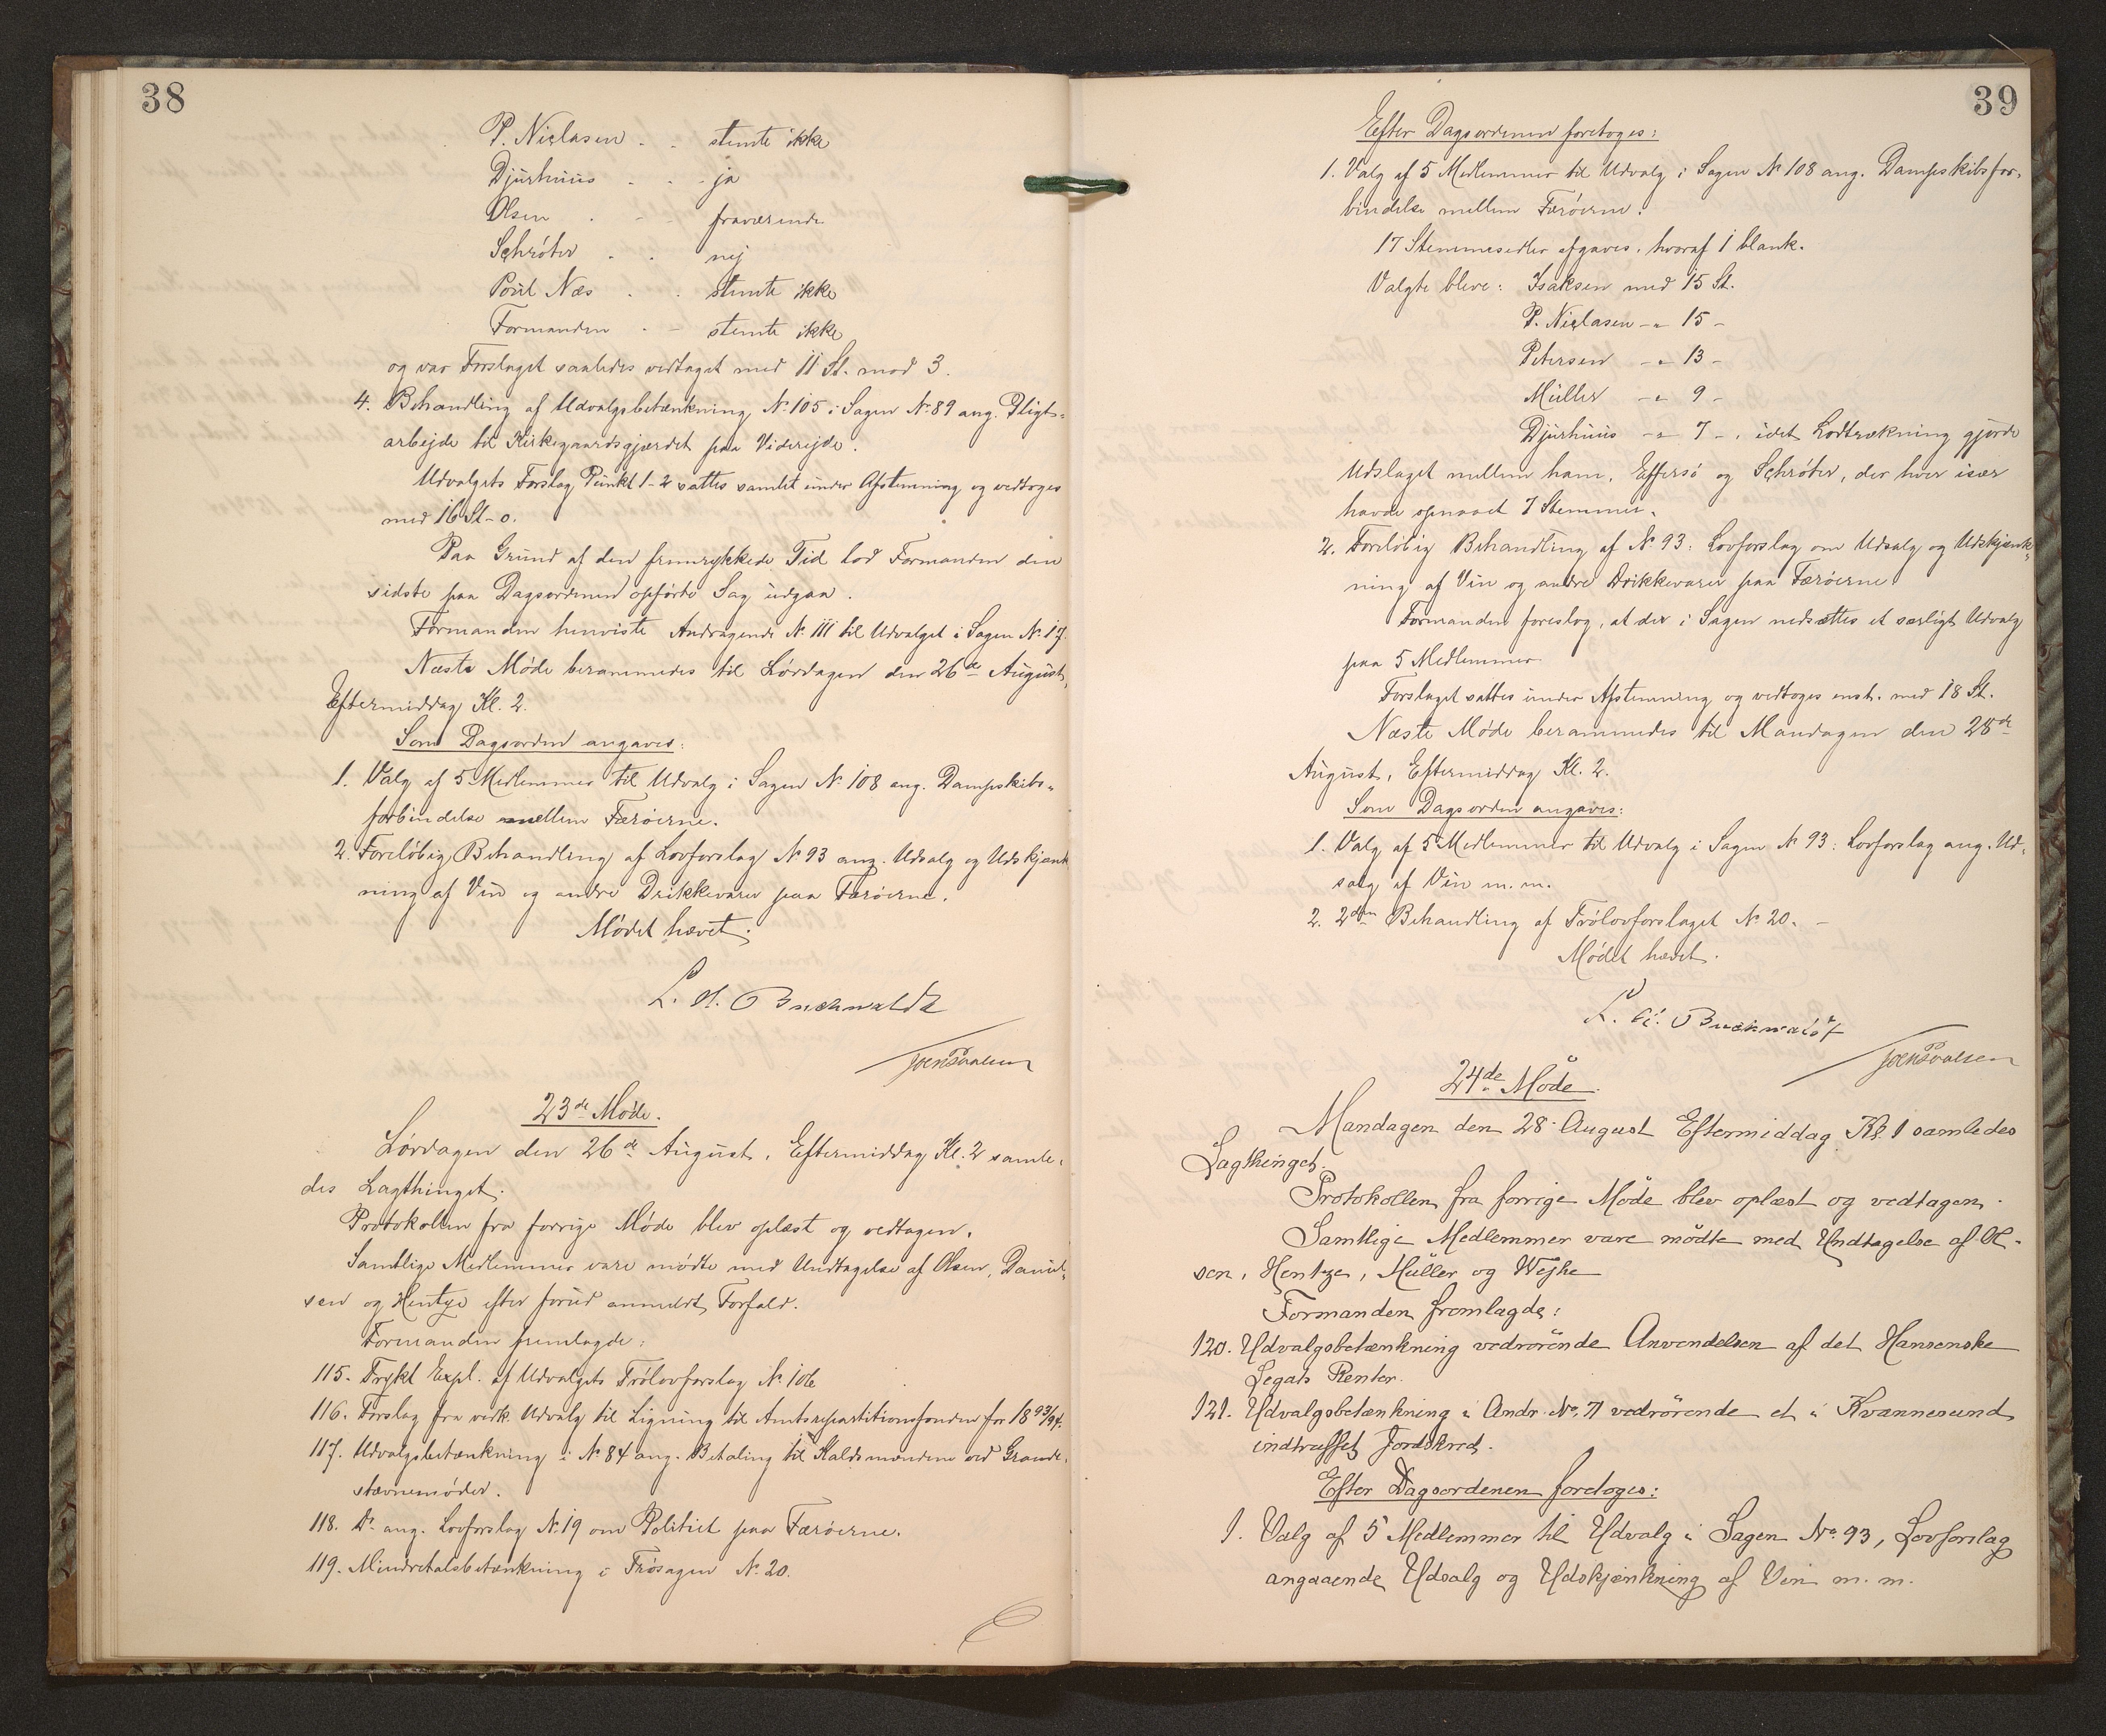 38
P. Niclasen - - stemte ikke
Djurhuus - - - ja
Olsen - - - fraværende
Schröter - - nej
Poul Næs - - stemte ikke
Formanden - - stemte ikke
og var Forslaget saaledes vedtaget med 11 St. mod 3.
4. Behandling af Udvalgsbetænkning No 105 i Sagen No 89 ang. Pligts-
arbejde til Kirkegaardsgjærdet paa Viderejde.
Udvalgets Forslag Punkt 1-2 sattes samlet under Afstemning og vedtoges
med 16 St - 0.
Paa Grund af den fremrykkede Tid lod Formanden den
sidste paa Dagsordenen opførte Sag udgaa.
Formanden henviste Andragende No 111 til Udvalget i Sagen No 17.
Næste Møde berammedes til Lørdagen den 26de August,
Eftermiddag Kl. 2.
Som Dagsorden angaves:
1. Valg af 5 Medlemmer til Udvalg i Sagen No 108 ang. Dampskibs-
forbindelse mellem Færøerne.
2. Foreløbig Behandling af Lovforslag No 93 ang. Udsalg og Udskjænk
ning af Vin og andre Drikkevarer paa Færøerne.
Mødet hævet.
L. H. Buchwaldt
Joen Poulsen
23de Møde.
Lørdagen den 26de August, Eftermiddag Kl. 2 samle-
des Lagthinget.
Protokollen fra forrige Møde blev oplæst og vedtagen.
Samtlige Medlemmer vare mødte med Undtagelse af Olsen, Daniel-
sen og Hentze efter forud anmeldt Forfald.
Formanden fremlagde:
115. Trykt Expl. af Udvalgets Frølovforslag No 106
116. Forslag fra vedk. Udvalg til Ligning til Amtsrepartitionsfonden for 1893/94.
117. Udvalgsbetænkning i No 84 ang. Betaling til Kaldsmændene ved Grande-
stævnemøder.
118. Do ang. Lovforslag No 19 om Politiet paa Færøerne.
119. Mindretalsbetænkning i Frøsagen No 20.
39
Efter Dagsordenen foretoges:
1. Valg af 5 Medlemmer til Udvalg i Sagen No 108 ang. Dampskibsfor-
bindelse mellem Færøerne.
17 Stemmesedler afgaves, hvoraf 1 blank.
Valgte bleve: Isaksen med 15 St.
P. Niclasen - " - 15 -
Petersen - " - 13 -
Müller - " - 9 -
Djurhuus - " - 7 -, idet Lodtrækning gjorde
Udslaget mellem ham, Effersö og Schröter, der hver især
havde opnaaet 7 Stemmer.
2. Foreløbig Behandling af No 93: Lovforslag om Udsalg og Udskjænk-
ning af Vin og andre Drikkevarer paa Færøerne
Formanden foreslog, at der i Sagen nedsættes et særligt Udvalg
paa 5 Medlemmer.
Forslaget sattes under Afstemning og vedtoges enst. med 18 St.
Næste Møde berammedes til Mandagen den 28de
August, Eftermiddag Kl. 2.
Som Dagsorden angaves:
1. Valg af 5 Medlemmer til Udvalg i Sagen No 93: Lovforslag ang. Ud-
salg af Vin m. m.
2. 2den Behandling af Frølovforslaget No 20. -
Mødet hævet.
L. H. Buchwaldt
Joen Poulsen
24de Møde.
Mandagen den 28. August Eftermiddag Kl. 1 samledes
Lagthinget.
Protokollen fra forrige Möde blev oplæst og vedtagen.
Samtlige Medlemmer vare mödte med Undtagelse af Ol-
sen, Hentze, Müller og Wejhe
Formanden fremlagde:
120. Udvalgsbetænkning vedrörende Anvendelsen af det Hansenske
Legats Renter.
121. Udvalgsbetænkning i Andr. No. 71 vedrörende et i Kvannesund
indtruffet Jordskred.
Efter Dagsordenen foretoges:
1. Valg af 5 Medlemmer til Udvalg i Sagen No. 93, Lovforslag
angaaende Udsalg og Udskjænkning af Vin m. m.